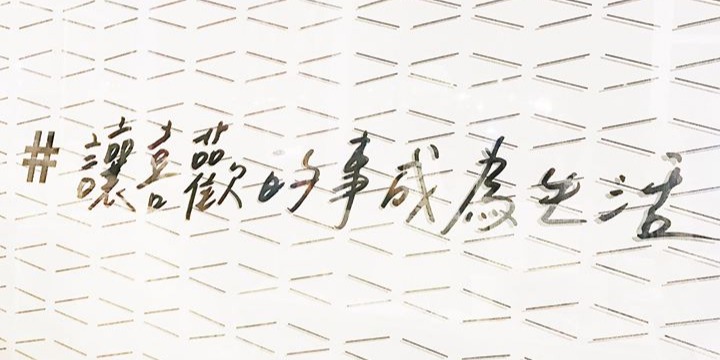 #讓喜歡的事成為生活